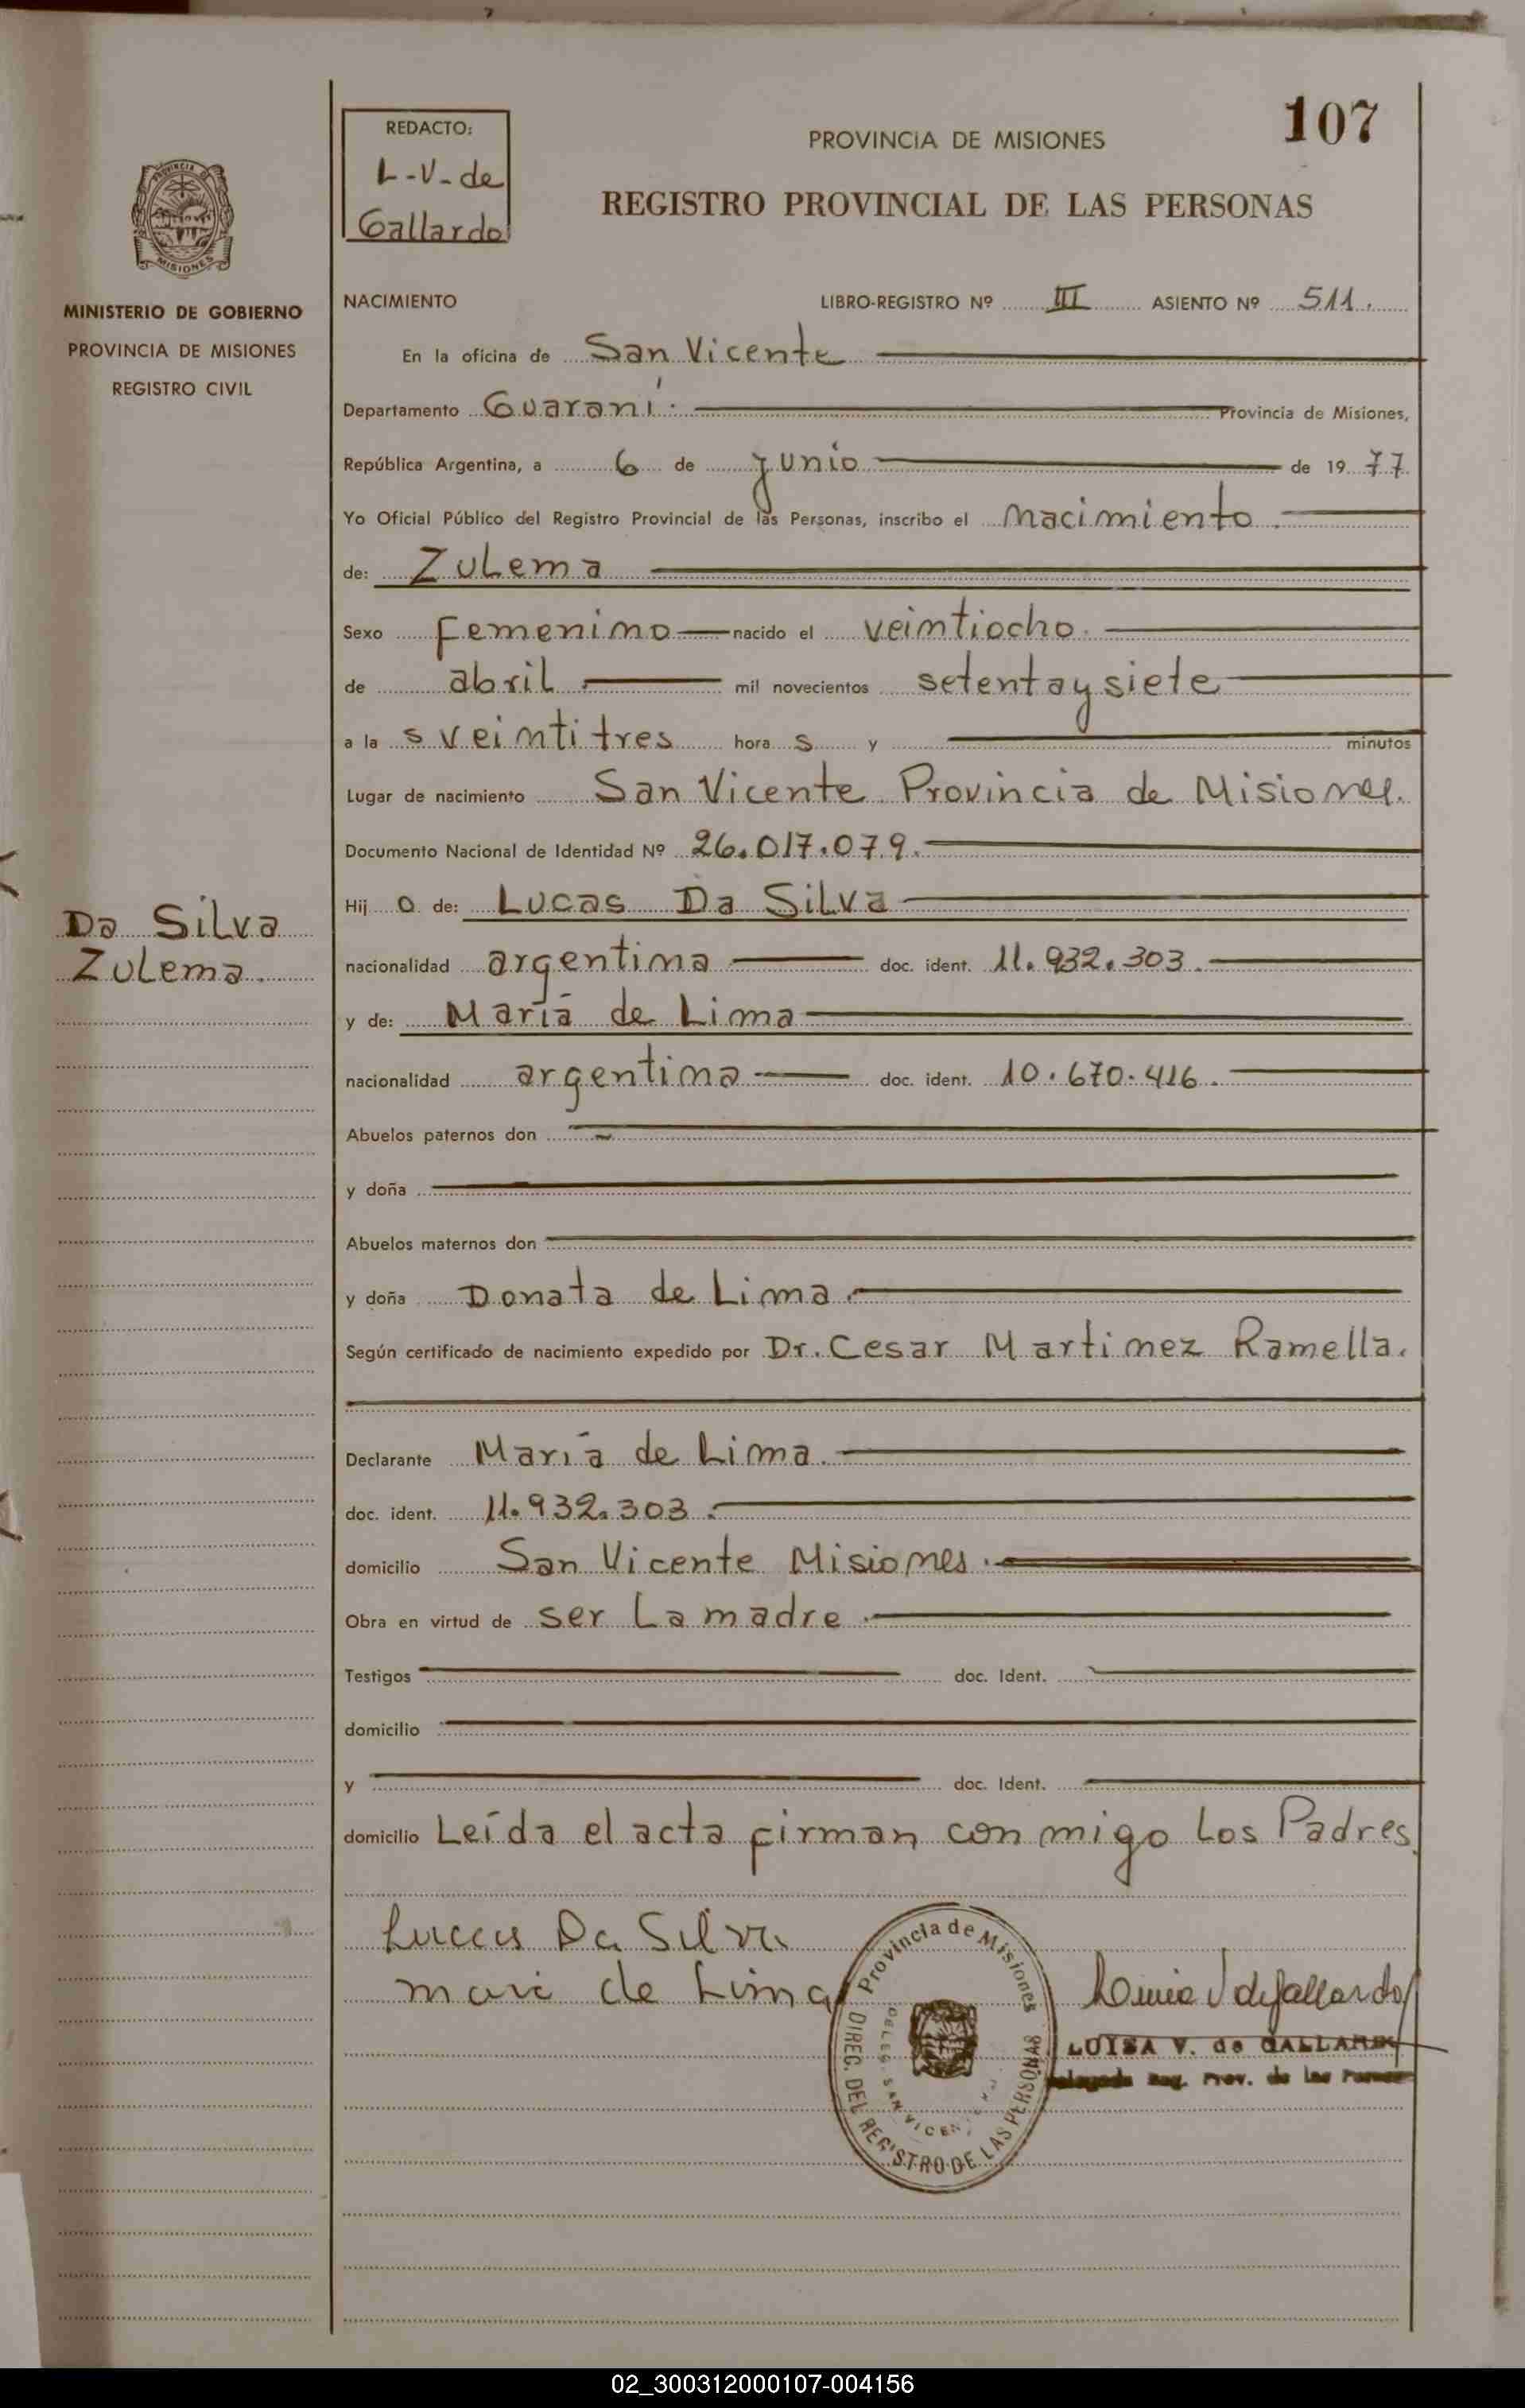 107
REDACTO:
L-V-de
Gallardo
PROVINCIA DE MISIONES
REGISTRO PROVINCIAL DE LAS PERSONAS
MISIONES
MINISTERIO DE GOBIERNO
PROVINCIA DE MISIONES
REGISTRO CIVIL
NACIMIENTO LIBRO-REGISTRO Nº III ASIENTO Nº 511.
En la oficina de San Vicente
Departamento Guaraní. Provincia de Misiones,
República Argentina, a 6 de Junio de 1977
Yo Oficial Público del Registro Provincial de las Personas, inscribo el nacimiento.
de: Zulema
Sexo femenino nacido el veintiocho.
de abril mil novecientos setenta y siete
a la s veintitres hora s y minutos
Lugar de nacimiento San Vicente Provincia de Misiones.
Documento Nacional de Identidad Nº 26.017.079.
Hij o de: Lucas Da Silva
Da Silva
Zulema.
nacionalidad argentina doc. ident. 11.932.303.
y de: María de Lima
nacionalidad argentina doc. ident. 10.670.416.
Abuelos paternos don
y doña
Abuelos maternos don
y doña Donata de Lima.
Según certificado de nacimiento expedido por Dr. Cesar Martinez Ramella.
Declarante María de Lima.
doc. ident. 11.932.303.
domicilio San Vicente Misiones.
Obra en virtud de ser la madre.
Testigos doc. Ident.
domicilio
y doc. Ident.
domicilio Leída el acta firman con migo los Padres.
Lucas Da Silva
mari de Lima
Provincia de Misiones
DIREC. DEL REGISTRO DE LAS PERSONAS
DELEG. SAN VICENTE
LUISA V. de GALLARDO
Reg. Prov. de las
02_300312000107-004156